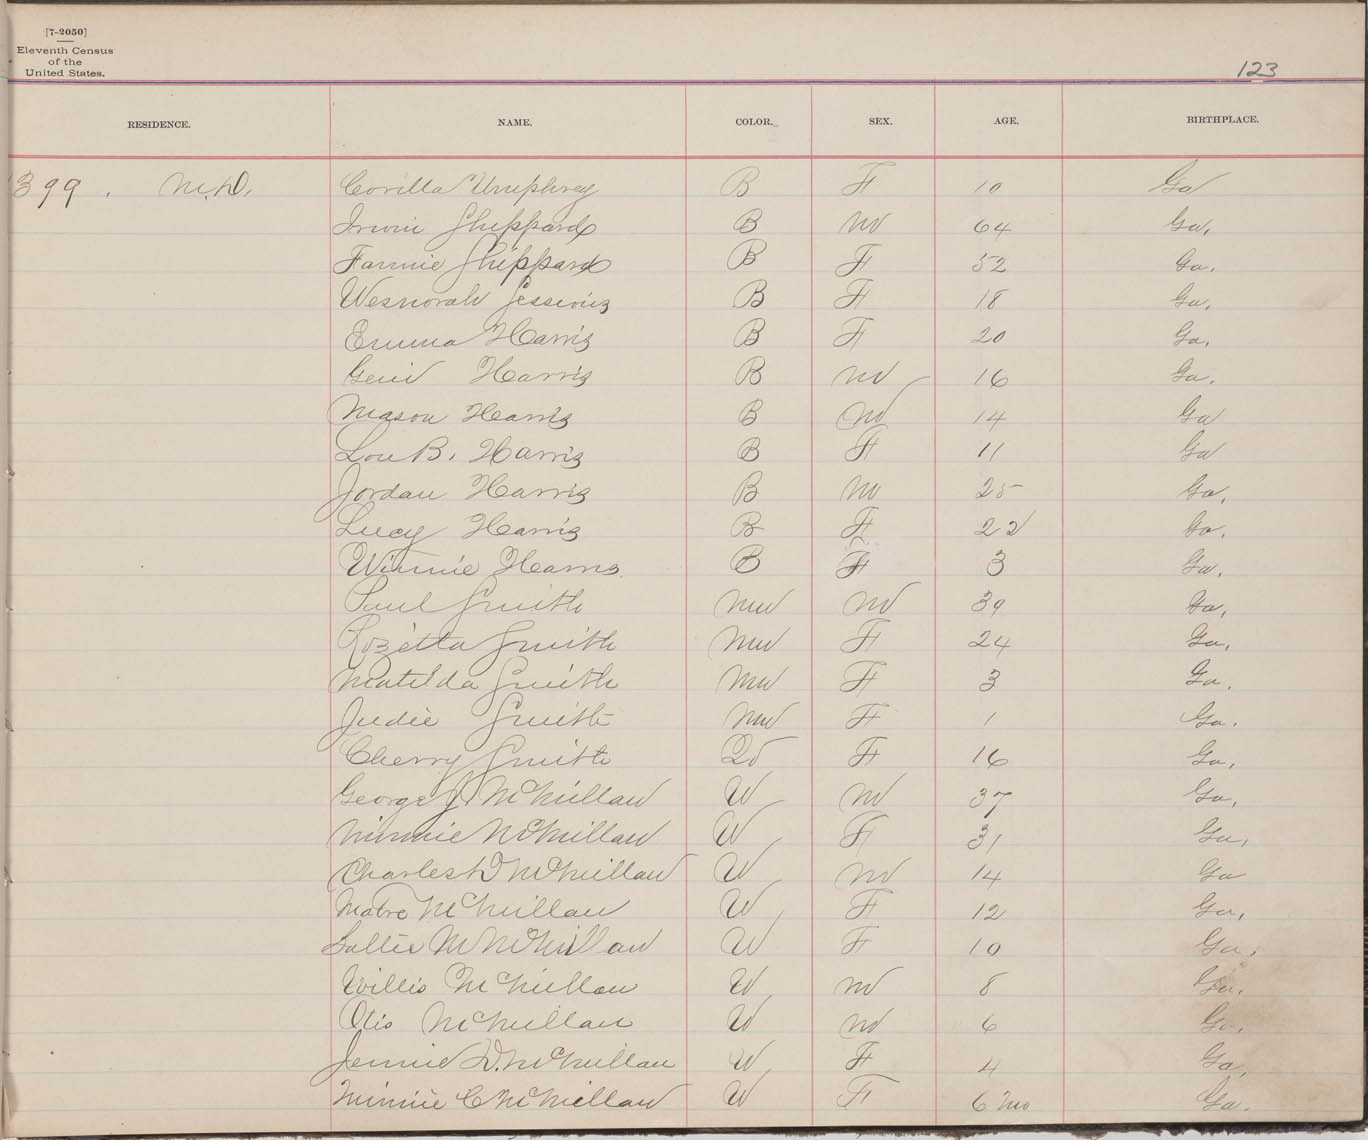 [7-2050]
Eleventh Census
of the
United States.
123
RESIDENCE. NAME. COLOR. SEX. AGE. BIRTHPLACE.
399. M.D. Corilla Umphrey B F 10 Ga
Irwin Sheppard B M 64 Ga.
Fannie Sheppard B F 52 Ga.
B F 18 Ga.
Emma Harris B F 20 Ga.
Harris B M 16 Ga.
Mason Harris B M 14 Ga
Lou B. Harris B F 11 Ga
Jordan Harris B M 25 Ga.
Lucy Harris B F 22 Ga.
Winnie Harris B F 3 Ga.
Paul Smith Mu M 39 Ga.
Rozetta Smith Mu F 24 Ga.
Matilda Smith Mu F 3 Ga.
Judie Smith Mu F 1 Ga.
Cherry Smith F 16 Ga.
George J. McMillan W M 37 Ga.
Minnie McMillan W F 31 Ga.
Charles D McMillan W M 14 Ga
McMillan W F 12 Ga.
Sallie M McMillan W F 10 Ga.
Willis McMillan W M 8 Ga.
Otis McMillan W M 6 Ga.
Jennie D. McMillan W F 4 Ga.
Minnie C McMillan W F 6 mo Ga.